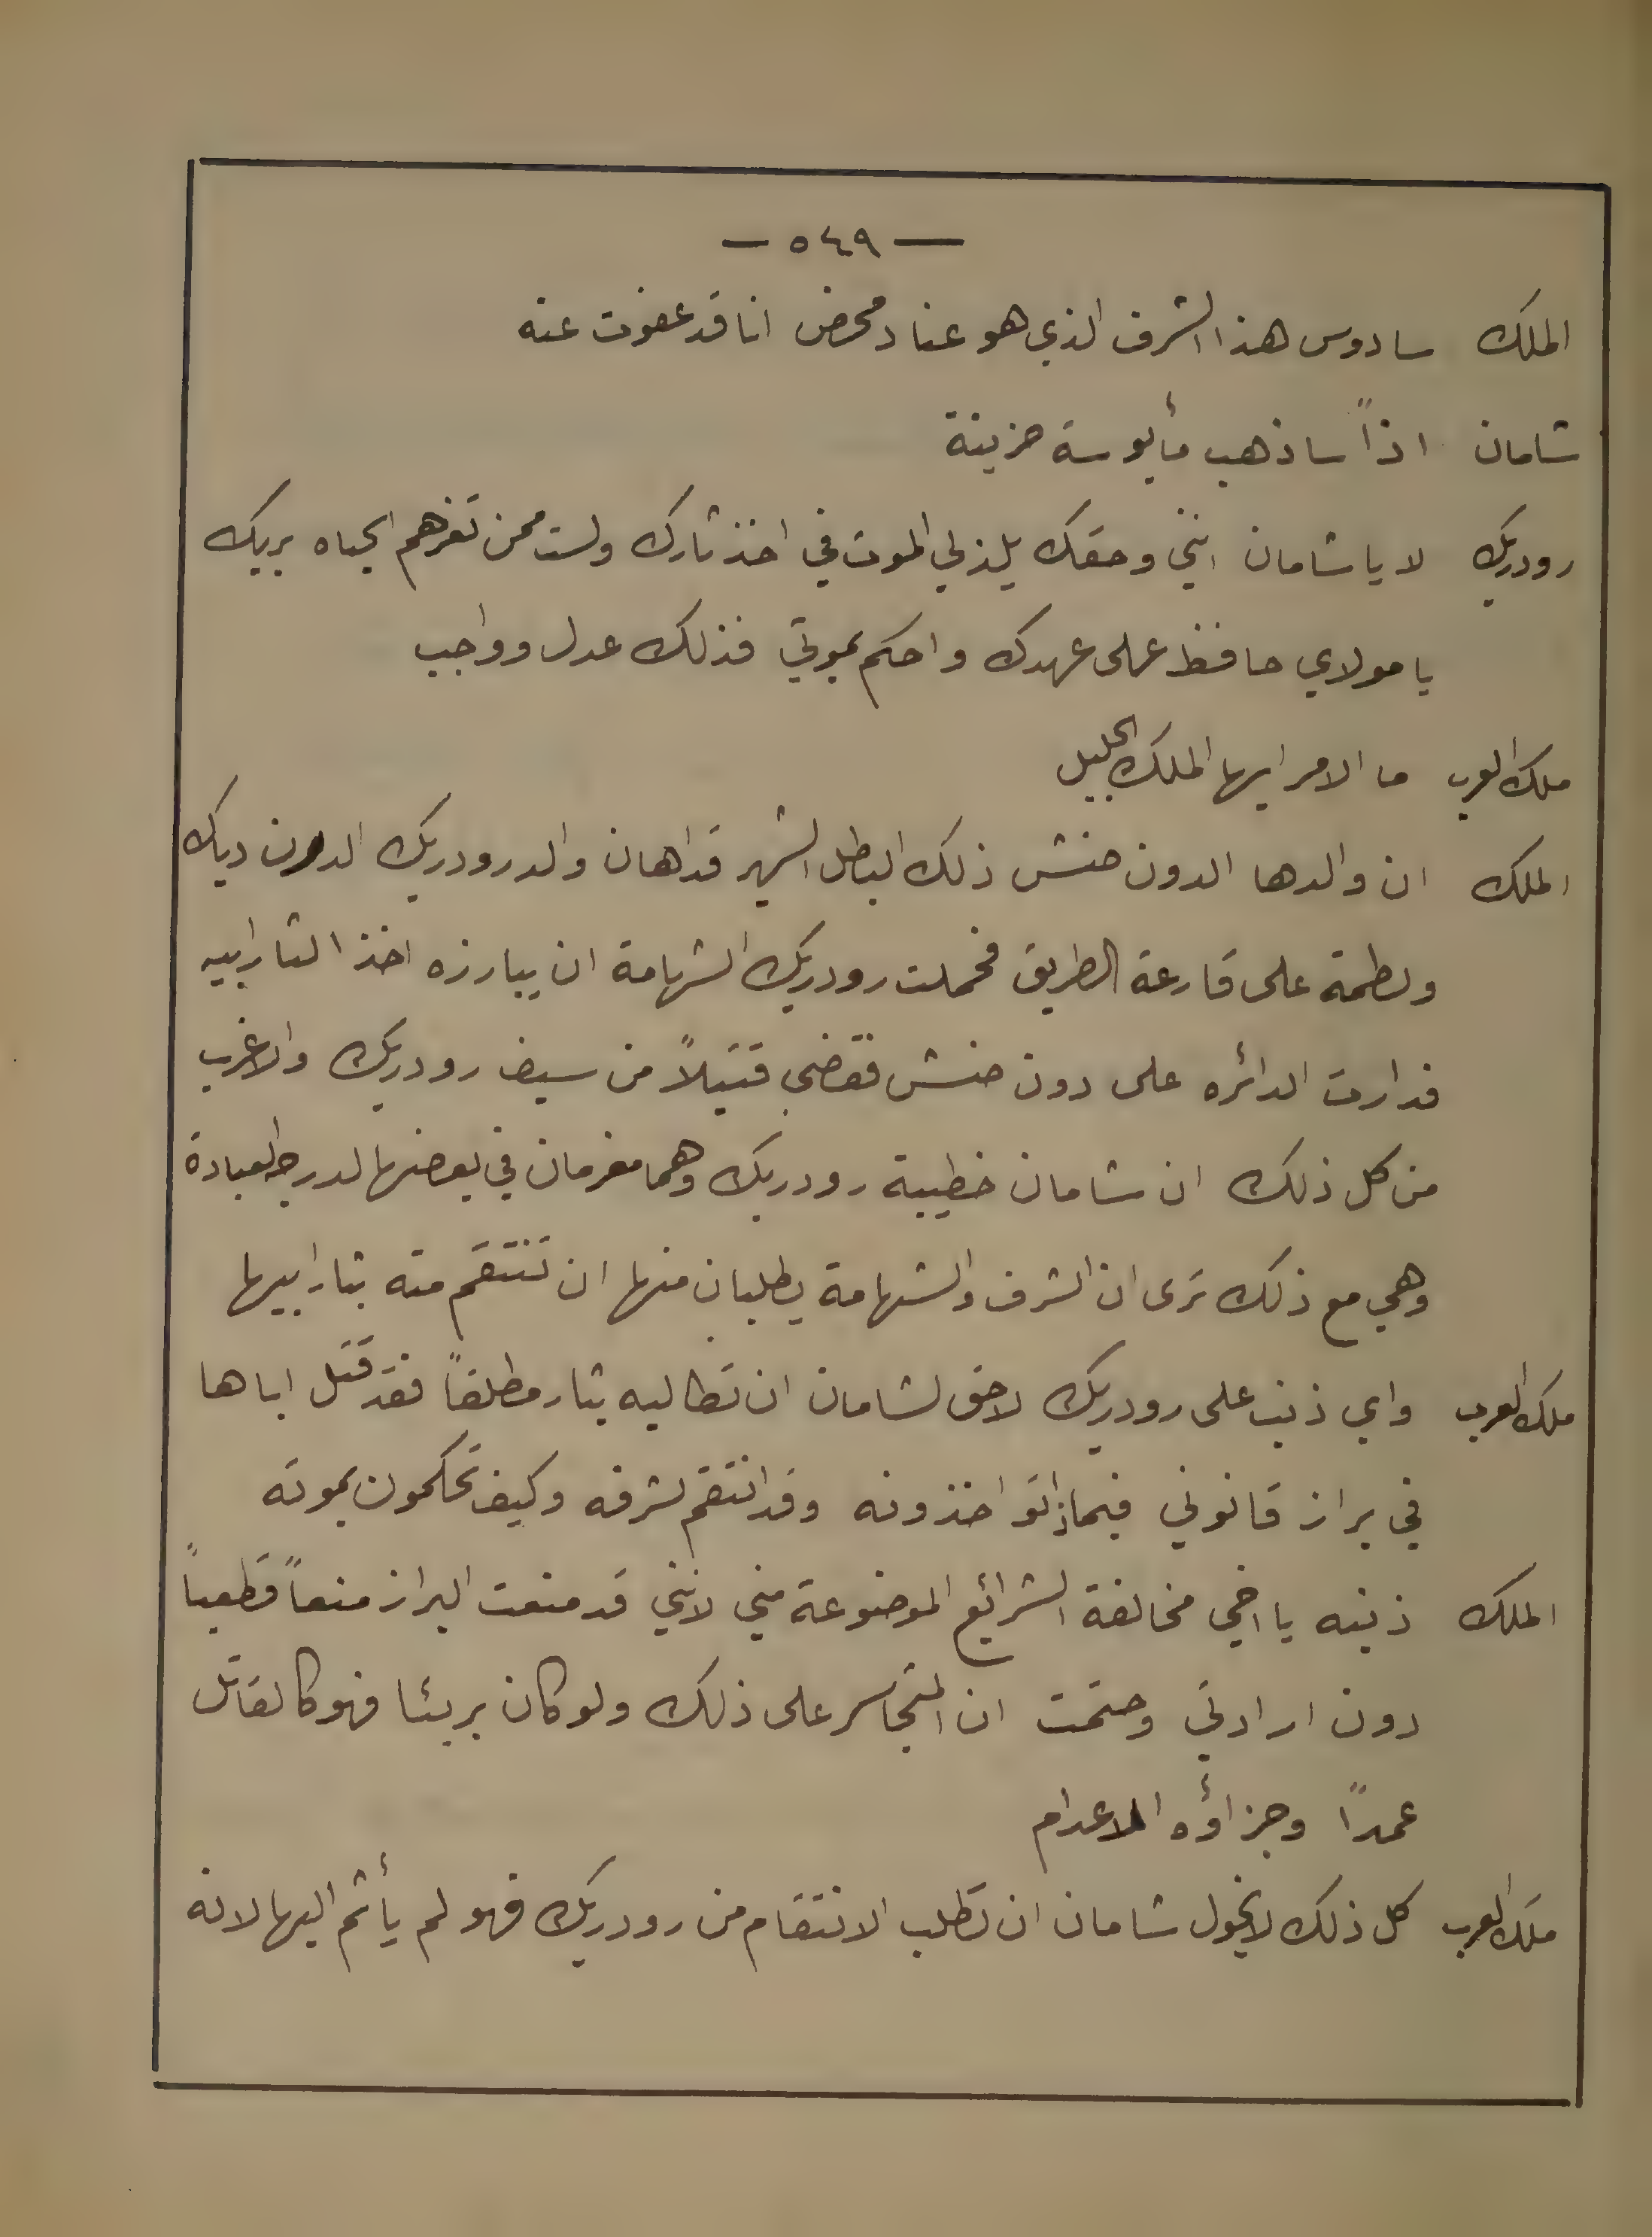 — ٥٤٩ —
الملك سادوس هذا الشرف الذي هو عناد محض انا قد عفوت عنه
شامان اذاً ساذهب مأيوسة حزينة
رودريك لا يا شامان انني وحقك يلذ لي الموت في اخذ ثارك ولست ممن تغرهم الحياه بربك
يا مولاي حافظ على عهدك واحكم بموتي فذلك عدل وواجب
ملك العرب ما الامر ايها الملك الجليل
الملك ان والدها الدون جنش ذلك البطل الشهير قد اهان والد رودريك الدون ديك
ولطمة على قارعة الطريق فحملت رودريك الشهامة ان يبارزه اخذ الثار ابيه
فدارت الدائره على دون جنش فقضي قتيلاً من سيف رودريك والاغرب
من كل ذلك ان شامان خطيبة رودريك وهما مغرمان في بعضهما لدرجة العبادة
وهي مع ذلك ترى ان الشرف والشهامة يطلبان منها ان تنتقم منه بثار ابيها
ملك العرب واي ذنب على رودريك لا حق لشامان ان تطالبه بثار مطلقاً فقد قتل اباها
في براز قانوني فبماذا تواخذونه وقد انتقم لشرفه وكيف تحكمون بموته
الملك ذنبه يا اخي مخالفة الشرائع الموضوعة مني لانني قد منعت البراز منعاً قطعياً
دون ارادتي وحتمت ان المتجاسر على ذلك ولو كان بريئا فهو كالقاتل
عمداً وجزاؤه الاعدام
ملك العرب كل ذلك لا يخول شامان ان تطلب الانتقام من رودريك فهو لم يأثم اليها لانه